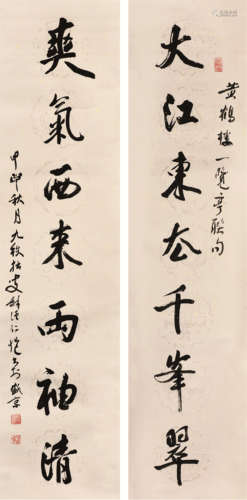 大江東去千峰翠
黃鶴樓一覽亭聯句
爽氣西來兩袖清
甲申秋月九枝